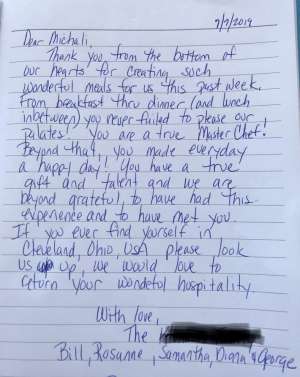 7/7/2019
Dear Michali,
Thank you from the bottom of
our hearts for creating such
wonderful meals for us this past week.
From breakfast thru dinner, (and lunch
inbetween) you never failed to please our
palates! You are a true Master Chef!
Beyond that, you made everyday
a happy day! You have a true
gift and talent and we are
beyond grateful to have had this
experience and to have met you.
If you ever find yourself in
Cleveland, Ohio, USA please look
us up, we would love to
return your wondeful hospitality.
With love,
The
Bill, Rosanne, Samantha, Diana & George